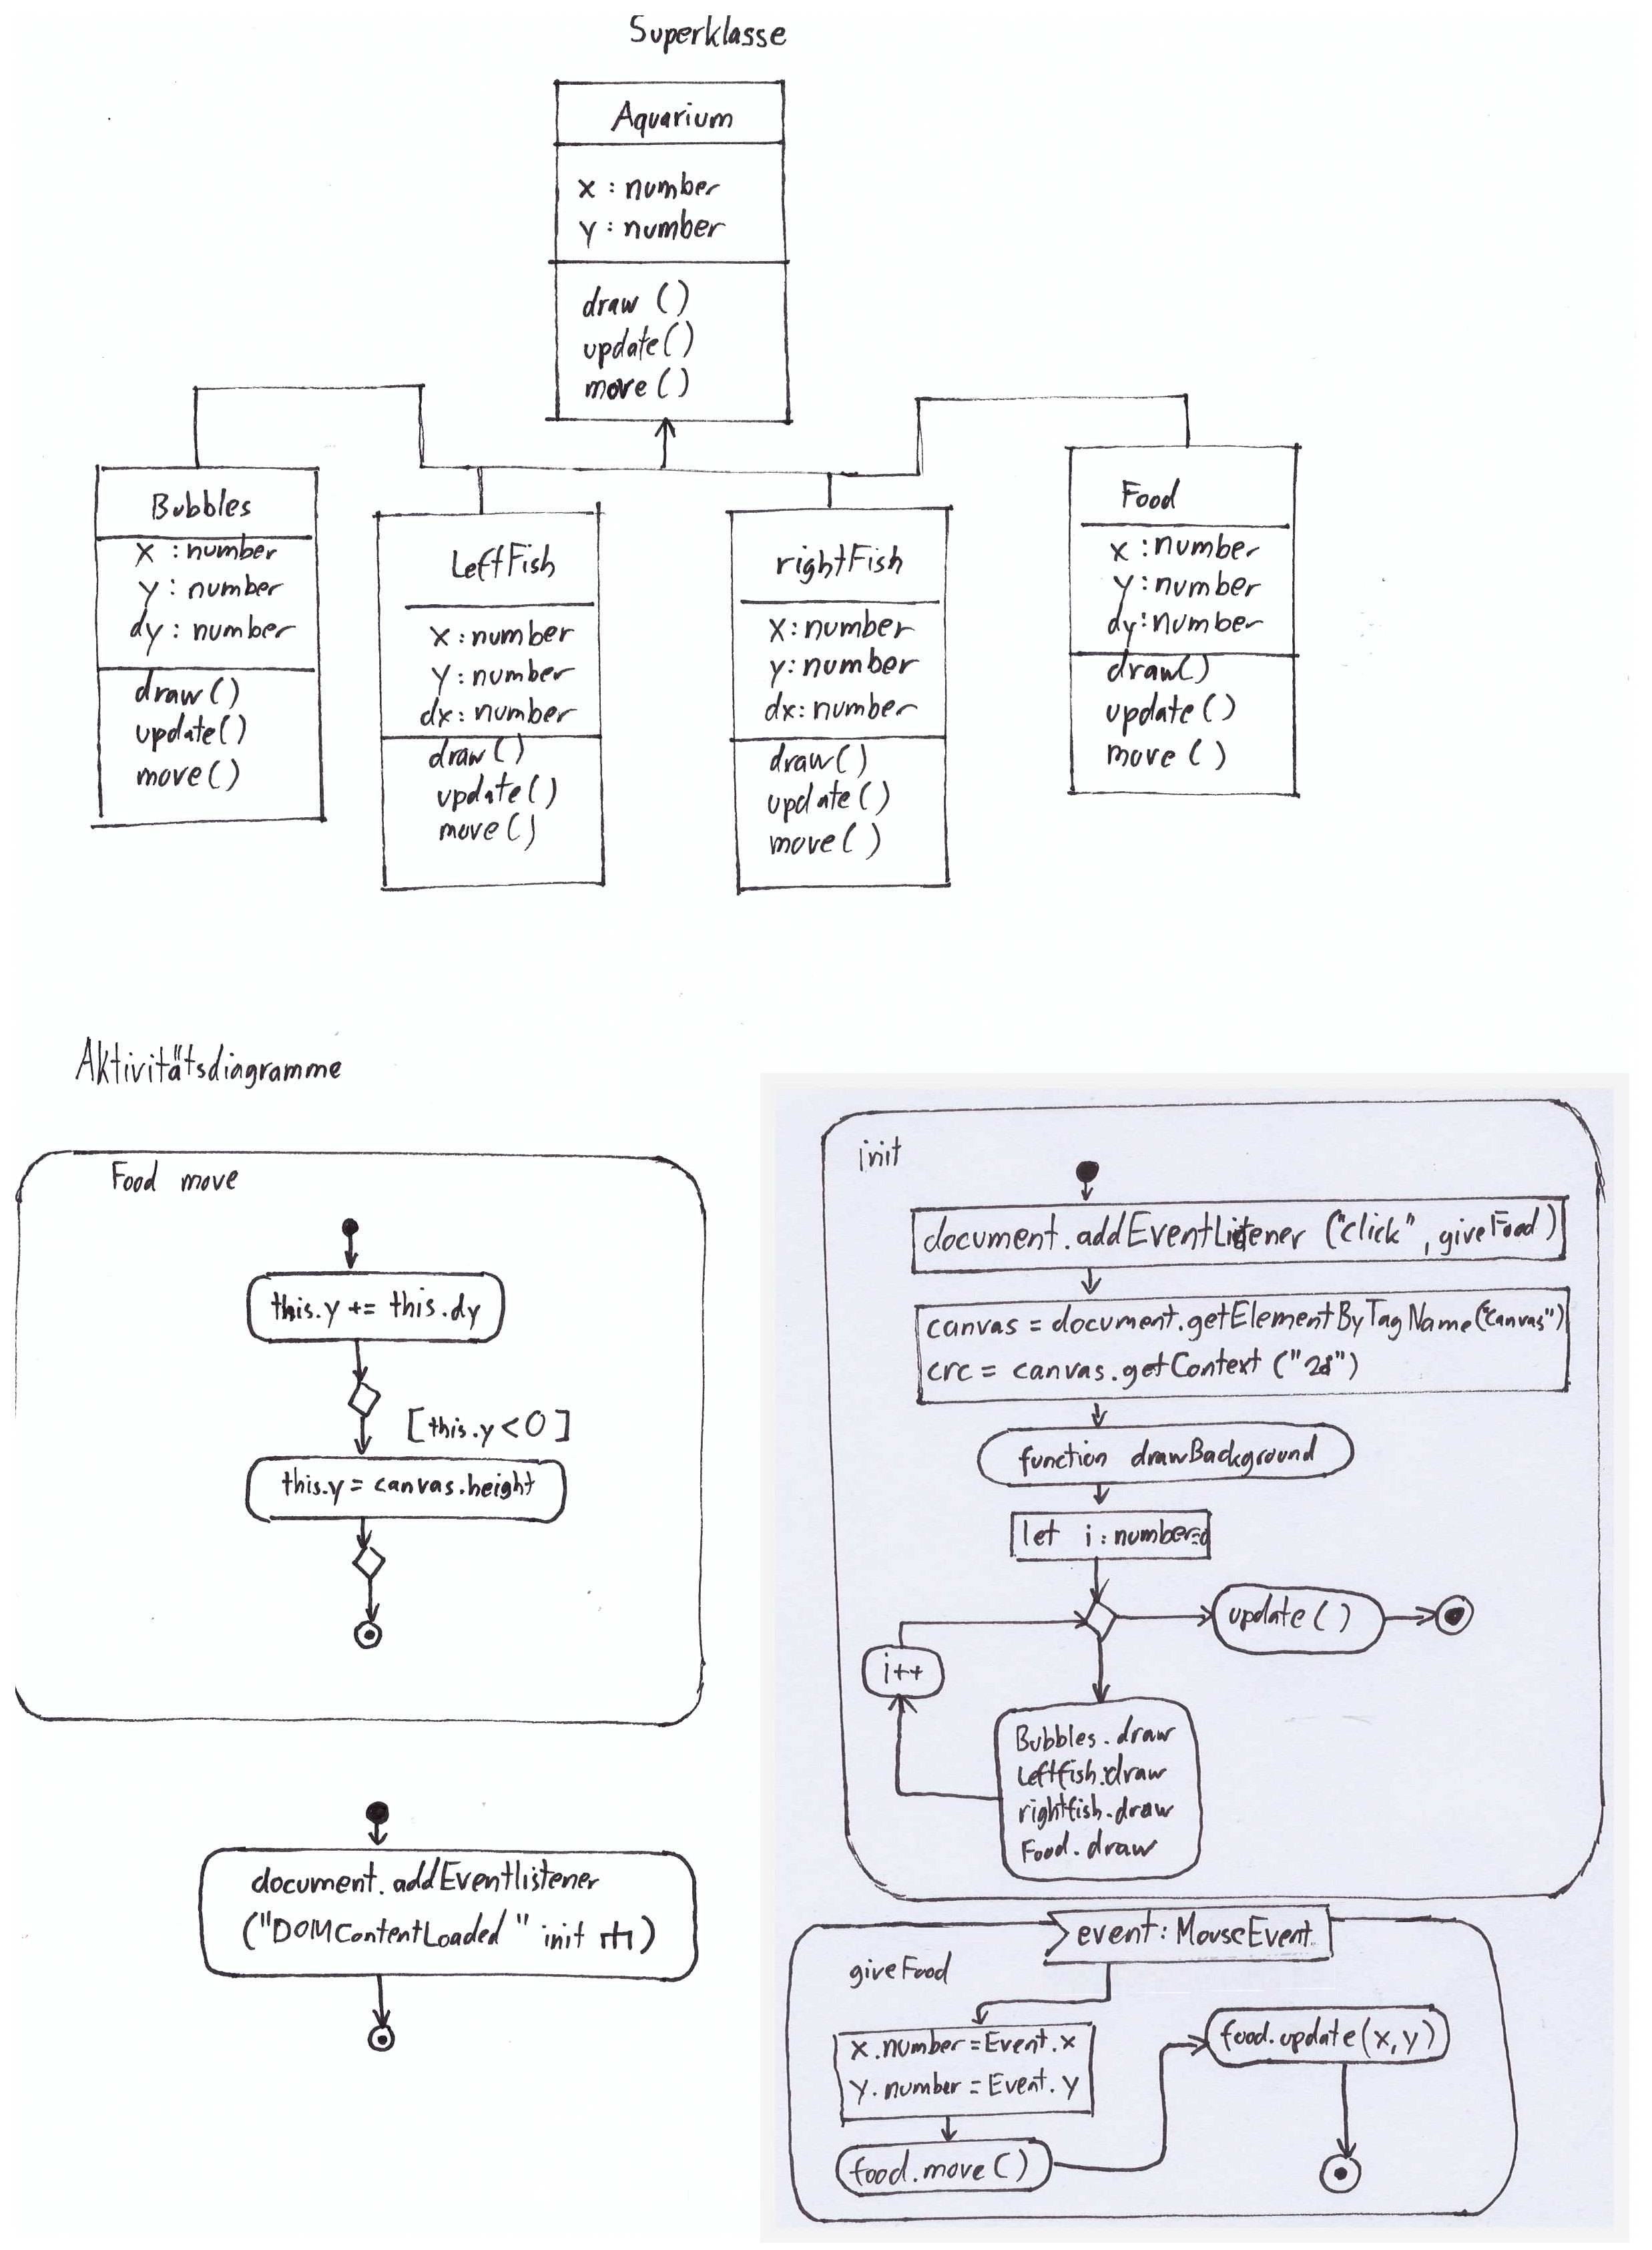 Superklasse
Aquarium
x : number
y : number
draw ()
update()
move ()
Bubbles
x : number
y : number
dy : number
draw ()
update()
move ()
LeftFish
x : number
y : number
dx : number
draw ()
update()
move ()
rightFish
x : number
y : number
dx : number
draw ()
update()
move ()
Food
x : number
y : number
dy : number
draw()
update ()
move ()
Aktivitätsdiagramme
Food move
this.y += this.dy
[this.y < 0]
this.y = canvas.height
document.addEventlistener
("DOMContentLoaded" init)
init
document.addEventListener ("click", giveFood)
canvas = document.getElementByTagName("canvas")
crc = canvas.getContext ("2d")
function drawBackground
let i : number=0
update ()
i++
Bubbles.draw
Leftfish.draw
rightfish.draw
Food.draw
event: MouseEvent
giveFood
x.number = Event.x
y.number = Event.y
food.move ()
food.update(x,y)